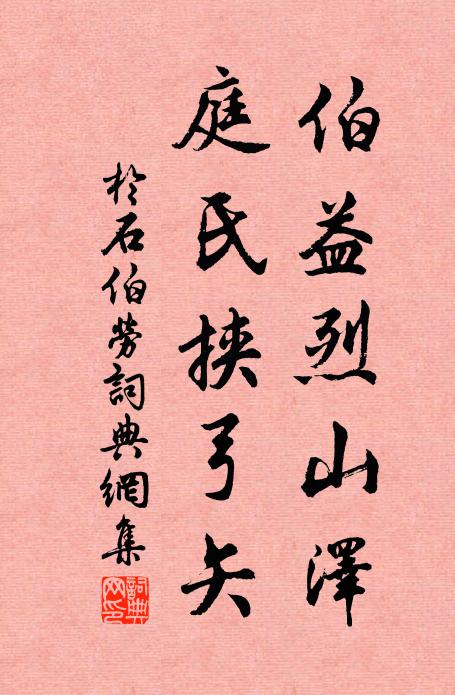 伯益烈山澤
庭氏挾弓矢
於石伯勞詞典網集
詞典網印